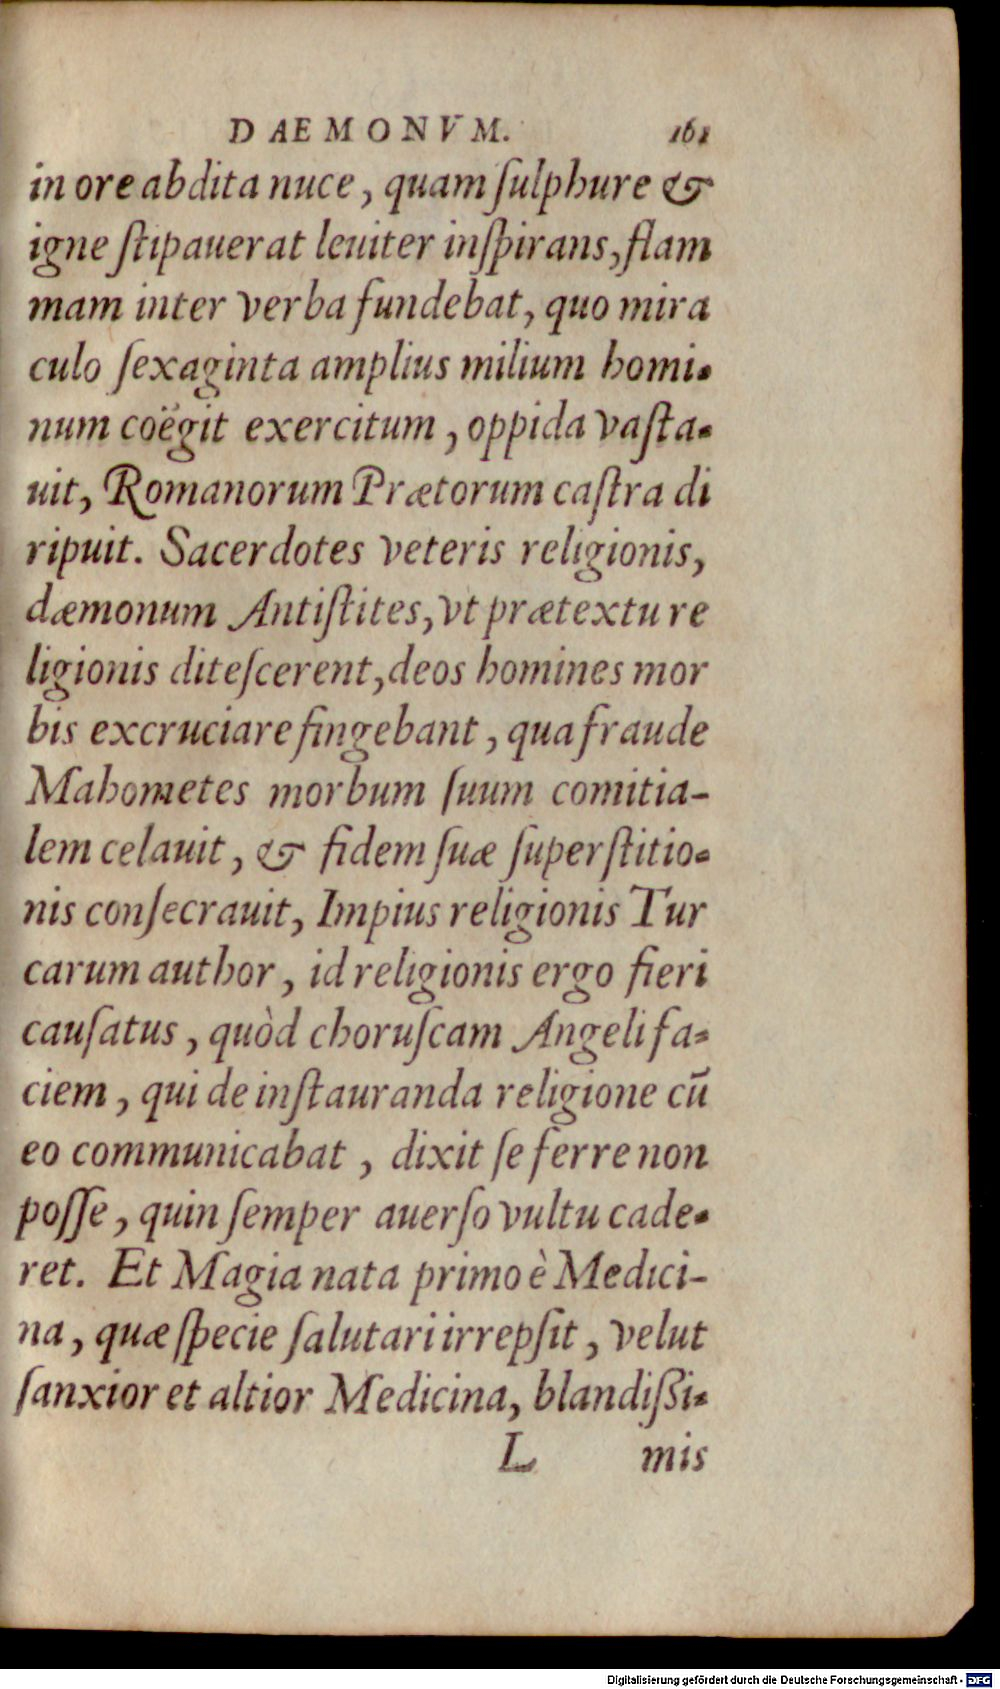 DAEMONVM. 161
in ore abdita nuce, quam ſulphure &
igne ſtipauerat leuiter inſpirans, flam
mam inter verba fundebat, quo mira
culo ſexaginta amplius milium homi-
num coëgit exercitum, oppida vaſta-
uit, Romanorum Prætorum caſtra di
ripuit. Sacerdotes veteris religionis,
dæmonum Antiſtites, vt prætextu re
ligionis diteſcerent, deos homines mor
bis excruciare fingebant, qua fraude
Mahometes morbum ſuum comitia-
lem celauit, & fidem ſuæ ſuperſtitio-
nis conſecrauit, Impius religionis Tur
carum author, id religionis ergo fieri
cauſatus, quòd choruſcam Angeli fa-
ciem, qui de inſtauranda religione cū
eo communicabat, dixit ſe ferre non
poſſe, quin ſemper auerſo vultu cade-
ret. Et Magia nata primo è Medici-
na, quæ ſpecie ſalutari irrepſit, velut
ſanxior et altior Medicina, blandiſsi-
L mis
Digitalisierung gefördert durch die Deutsche Forschungsgemeinschaft - DFG